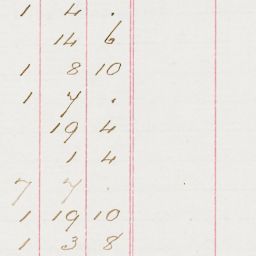 1 4 .
14 6
1 8 10
1 7 .
19 4
1 4
7 7 .
1 19 10
1 3 8